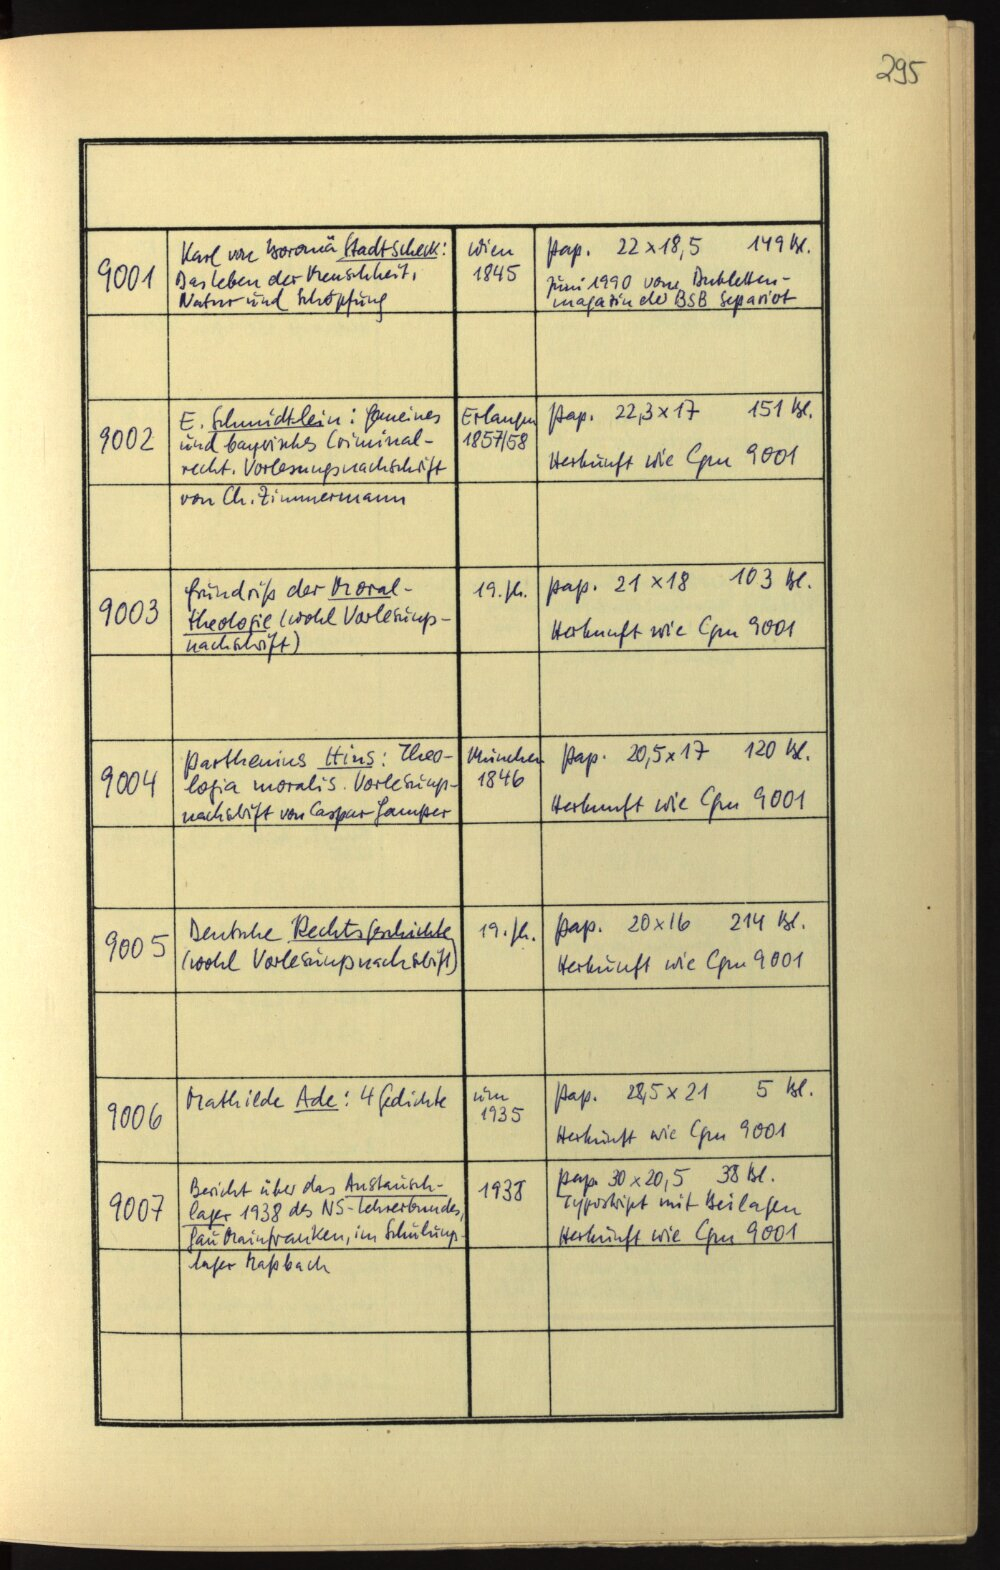 295
9001
Karl von Boromä Stadtscheck:
Das Leben der Menschheit,
Natur und Schöpfung
Wien
1845
Pap. 22 x 18,5 149 Bl.
Juni 1990 vom Dubletten-
magazin der BSB separiert
9002
E. Schmidtlein: Gemeines
und bayrisches Criminal-
recht. Vorlesungsnachschrift
von Ch. Zimmermann
Erlangen
1857/58
Pap. 22,3 x 17 151 Bl.
Herkunft wie Cgm 9001
9003
Grundriß der Moral-
theologie (wohl Vorlesungs-
nachschrift)
19. Jh.
Pap. 21 x 18 103 Bl.
Herkunft wie Cgm 9001
9004
Parthenius Hins: Theo-
logia moralis. Vorlesungs-
nachschrift von Caspar
München
1846
Pap. 20,5 x 17 120 Bl.
Herkunft wie Cgm 9001
9005
Deutsche Rechtsgeschichte
(wohl Vorlesungsnachschrift)
19. Jh.
Pap. 20 x 16 214 Bl.
Herkunft wie Cgm 9001
9006
Mathilde Ade: 4 Gedichte
um
1935
Pap. 28,5 x 21 5 Bl.
Herkunft wie Cgm 9001
9007
Bericht über das Austausch-
lager 1938 des NS-Lehrerbundes,
Gau Mainfranken, im Schulungs-
lager Maßbach
1938
Pap. 30 x 20,5 38 Bl.
Typoskript mit Beilagen
Herkunft wie Cgm 9001